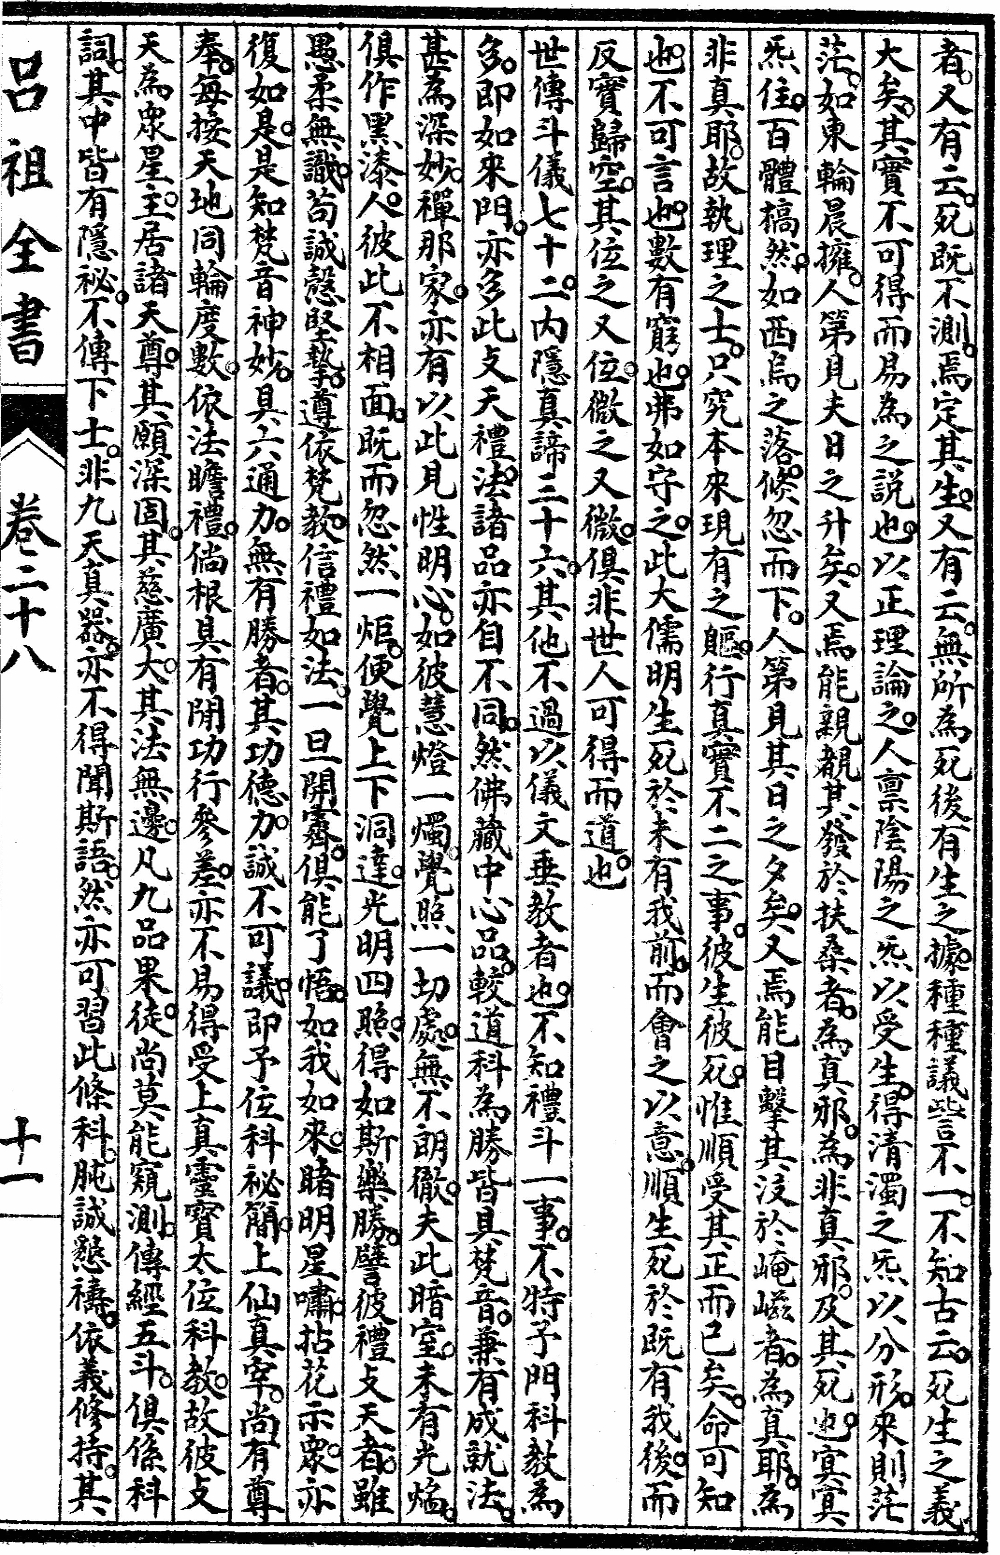 者又有云死既不測焉定其生又有云無所為死後有生之據種種議訾不一不知古云死生之義
大矣其實不可得而易為之說也以正理論之人禀陰陽之炁以受生得清濁之炁以分形來則茫
茫如東輪晨擁人第見夫日之升矣又焉能親覩其發於扶桑者為真邪為非真邪及其死也寞寞
炁住百體槁然如西烏之落倐忽而下人第見其日之夕矣又焉能目擊其沒於崦嵫者為真耶為
非真耶故執理之士只究本來現有之軀行真實不二之事彼生彼死惟順受其正而已矣命可知
也不可言也數有窮也弗如守之此大儒明生死於未有我前而會之以意順生死於既有我後而
反實歸空其位之又位微之又微俱非世人可得而道也
世傳斗儀七十二內隱真諦三十六其他不過以儀文垂教者也不知禮斗一事不特予門科教為
多即如來門亦多此攴天禮法諸品亦自不同然佛藏中心品較道科為勝皆具梵音兼有成就法
甚為深妙禪那家亦有以此見性明心如彼慧燈一燭覺照一切處無不朗徹夫此暗室未有光焰
俱作黑漆人彼此不相面既而忽然一炬便覺上下洞達光明四照得如斯樂勝譬彼禮攴天者雖
愚柔無識苟誠慤堅摯遵依梵教信禮如法一旦開霽俱能了悟如我如來睹明星嘯拈花示衆亦
復如是是知梵音神妙具六通力無有勝者其功德力誠不可議即予位科秘簡上仙真宰尚有尊
奉每按天地同輪度數依法瞻禮倘根具有閒功行參差亦不易得受上真靈寶太位科教故彼攴
天為眾星主居諸天尊其願深固其慈廣大其法無邊凡九品果徒尚莫能窺測傳經五斗俱係科
詞其中皆有隱祕不傳下士非九天真器亦不得聞斯語然亦可習此條科肫誠懇禱依義修持其
呂祖全書
卷二十八
十一